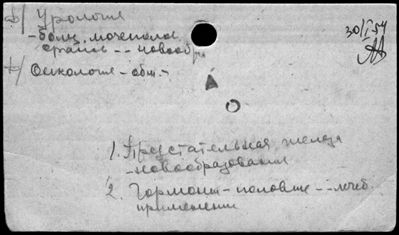 а) Урология
- бол. мочеполов.
органов -- новообр.
б) Онкология - общ. -
30/I-54
1. Предстательная железа
- новообразования
2. Гормоны - половые -- лечеб.
применение